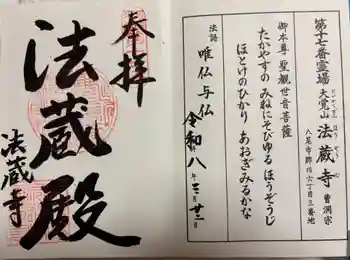 第十七番霊場
大覚山 法蔵寺 曹洞宗
八尾市郡川六丁目三番地
御本尊 聖観世音菩薩
たかやすの みねにそびゆる ほうぞうじ
ほとけのひかり あおぎみるかな
法語
唯仏与仏
令和八年三月廿二日
奉拝
法蔵殿
法蔵寺